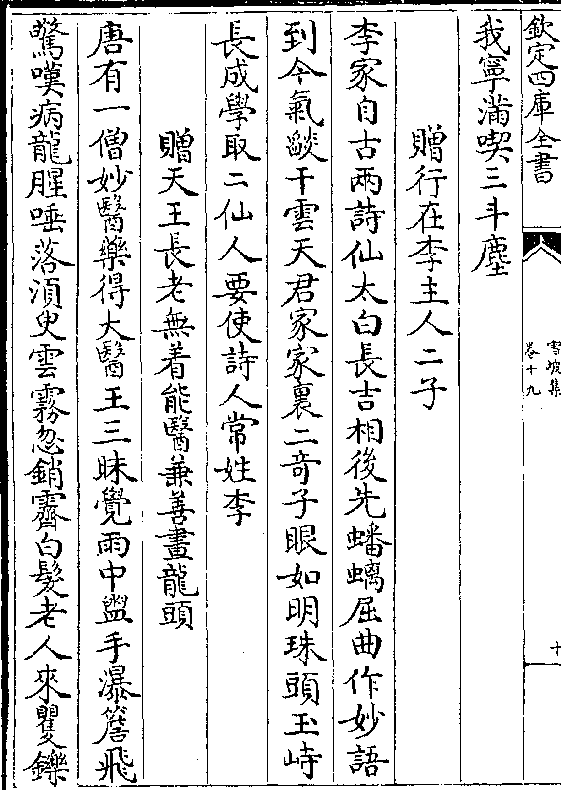 欽定四庫全書
雪坡集
卷十九
十
我寧滿喫三斗塵
贈行在李主人二子
李家自古兩詩仙太白長吉相後先蟠螭屈曲作妙語
到今氣燄干雲天君家家裏二奇子眼如明珠頭玉峙
長成學取二仙人要使詩人常姓李
贈天王長老無着能醫兼善畫龍頭
唐有一僧妙醫藥得大醫王三昧覺雨中盥手瀑簷飛
驚嘆病龍腥唾落湏臾雲霧忽銷霽白髮老人來矍鑠